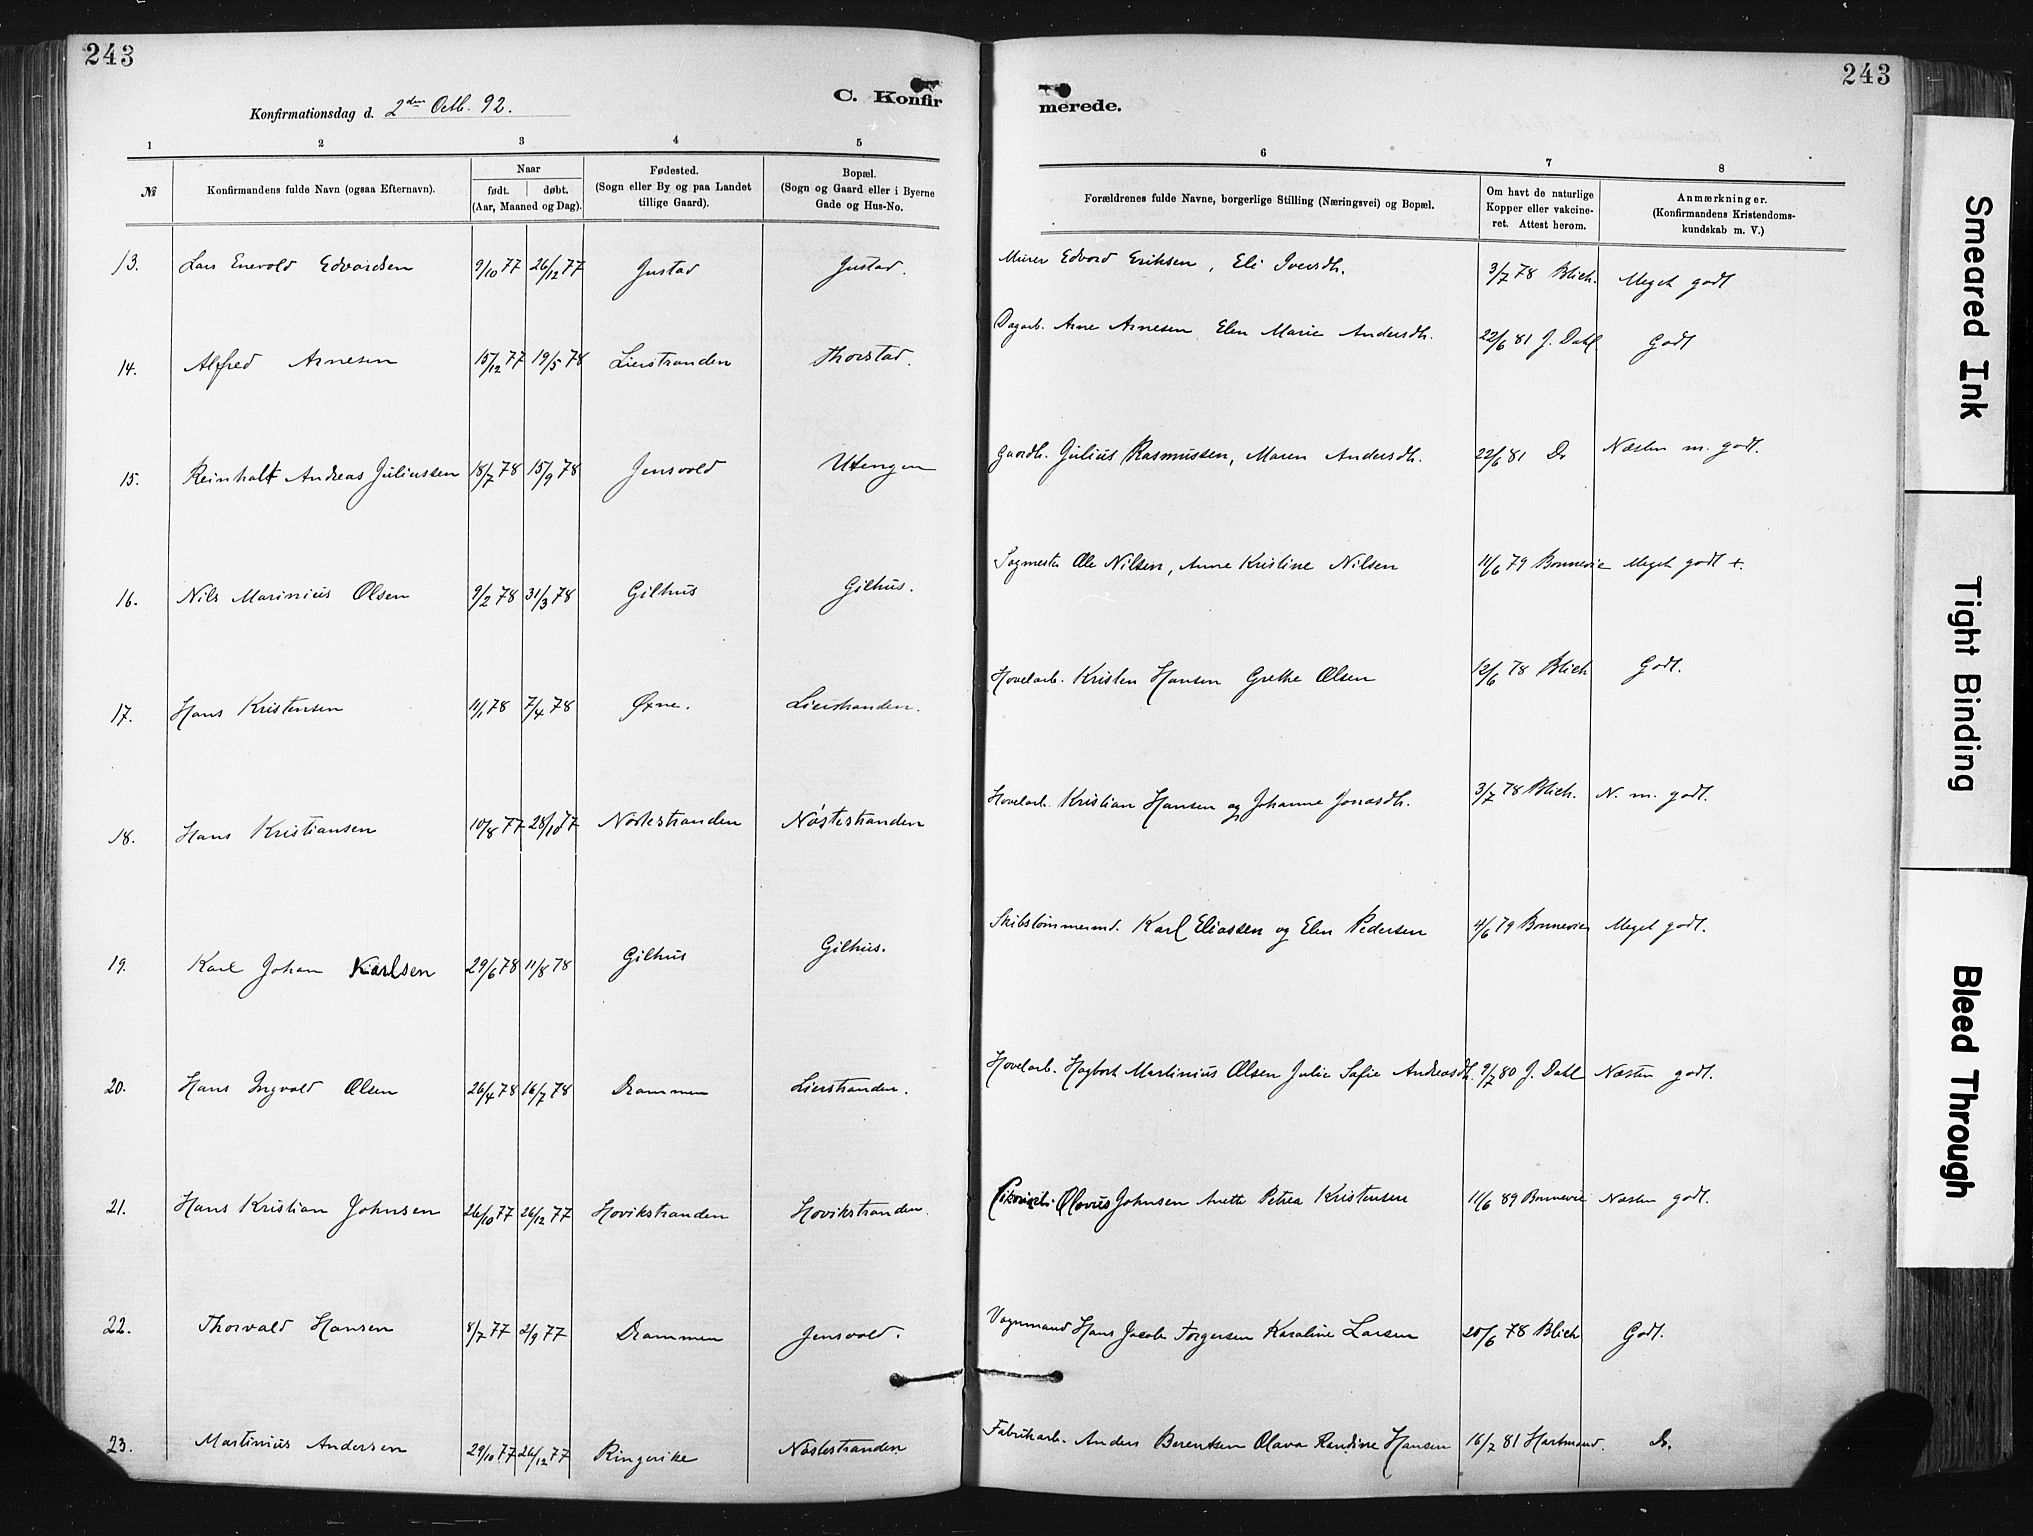 243
Konfirmationsdag d. 2den Octb. 92.
C. Konfir
1 2 3 4 5
№
Konfirmandens fulde Navn (ogsaa Efternavn).
Naar
født. døbt.
(Aar, Maaned og Dag).
Fødested.
(Sogn eller By og paa Landet
tillige Gaard).
Bopæl.
(Sogn og Gaard eller i Byerne
Gade og Hus-No.
13. Lars Enevold Edvardsen 9/10 77 26/12 77 Justad Justad.
14. Alfred Arnesen 15/12 77 19/5 78 Lierstranden Thorstad.
15. Reinhalt Andreas Juliussen 18/7 78 15/9 78 Jensvold Utengen
16. Nils Marinius Olsen 9/2 78 31/3 78 Gilhus Gilhus.
17. Hans Kristensen 11/1 78 7/4 78 Øxne. Lierstranden.
18. Hans Kristiansen 10/8 77 28/10 77 Nøstestranden Nøstestranden
19. Karl Johan Karlsen 29/6 78 11/8 78 Gilhus Gilhus.
20. Hans Ingvald Olsen 26/4 78 16/7 78 Drammen Lierstranden.
21. Hans Kristian Johnsen 26/10 77 26/12 77 Hovikstranden Hovikstranden.
22. Thorvald Hansen 8/7 77 2/9 77 Drammen Jensvold.
23. Martinius Andersen 29/10 77 26/12 77 Ringerike Nøstestranden
243
merede.
6 7 8
Forældrenes fulde Navne, borgerlige Stilling (Næringsvei) og Bopæl.
Om havt de naturlige
Kopper eller vakcine-
ret. Attest herom.
Anmærkninger.
(Konfirmandens Kristendoms-
kundskab m. V.)
Murer Edvard Eriksen, Eli Iversdh. 3/7 78 Blich. Meget godt
Dagarb. Arne Arnesen Elen Marie Andersdh. 22/6 81 J. Dahl Godt
Gaardb. Julius Rasmussen, Maren Andersdh. 22/6 81 Do Næsten m. godt.
Sagmester Ole Nilsen, Anne Kristine Nilsen 11/6 79 Bonnevie Meget godt +.
Hovelarb. Kristen Hansen Grethe Olsen 12/6 78 Blich Godt.
Hovelarb. Kristian Hansen og Johanne Jonasdh. 3/7 78 Blich. N. m. godt.
Skibstømmermd. Karl Eliassen og Elen Pedersen 4/6 79 Bonnevie Meget godt.
Hovelarb. Hagbart Martinius Olsen Julie Sofie Andreasdh. 9/7 80 J. Dahl Næsten godt.
Olavus Johnsen Anette Petrea Kristensen 11/6 89 Bonnevie Næsten godt.
Vognmand Hans Jacob Torgersen Karoline Larsen 20/6 78 Blich Godt.
Fabrikarb. Anders Berentsen Olava Randine Hansen 16/7 81 Hartmand. Do.
Smeared Ink
Tight Binding
Bleed Through